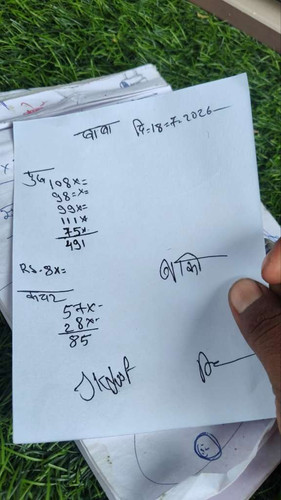 बाबा दि=18=7=2026
108x=
98=x=
99x=
111x
75x
491
Rs.-8x=
कचरा
57x-
28x-
85
बाकी